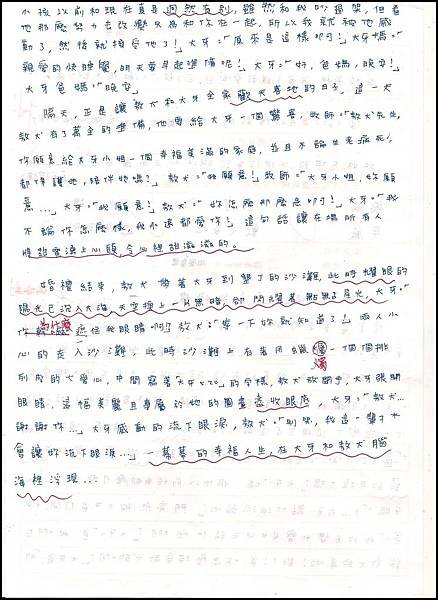 小孩以前和現在真是迥然有別,雖然和我吵架,但看
他那麼努力去改變只為和你在一起,所以我就被他感
動了,然後就接受他了!」大牙:「原來是這樣啊!」大牙媽:「
親愛的快睡覺,明天要早起準備呢!」大牙:「好,爸媽,晚安!」
大牙爸媽:「晚安」
隔天,正是讓教犬和大牙全家歡天喜地的日子,這一天
教犬有了萬全的準備,他要給大牙一個驚喜,牧師:「教犬先生,
你願意給大牙小姐一個幸福美滿的家庭,並且不論生老病死,
都保護她,陪伴她嗎?」教犬:「我願意!」牧師:「大牙小姐,妳願
意...」大牙:「我願意!」教犬:「妳怎麼那麼急啊!」大牙:「我
不論你怎麼樣,我永遠都愛你!」這句話讓在場所有人
將甜蜜湧上心頭,今心裡甜滋滋的。
婚禮結束,教犬帶著大牙到墾丁的沙灘,此時耀眼的
陽光已沉入大海,天空換上一片黑暗,卻閃耀著點點星光,大牙:「
你為什麼遮住我眼睛啊?」教犬:「等一下妳就知道了!」兩人小
心的走入沙灘,此時沙灘上有著用蠟燭一個個排
列成的大愛心,中間寫著「大牙」的字樣,教犬放開手,大牙張開
眼睛,這幅美麗且專屬於她的圖畫盡收眼底,大牙:「教犬...
謝謝你...」大牙感動的流下眼淚,教犬:「別哭,我這一輩子不
會讓妳流下眼淚...」一幕幕的幸福人生,在大牙和教犬腦
海裡浮現...